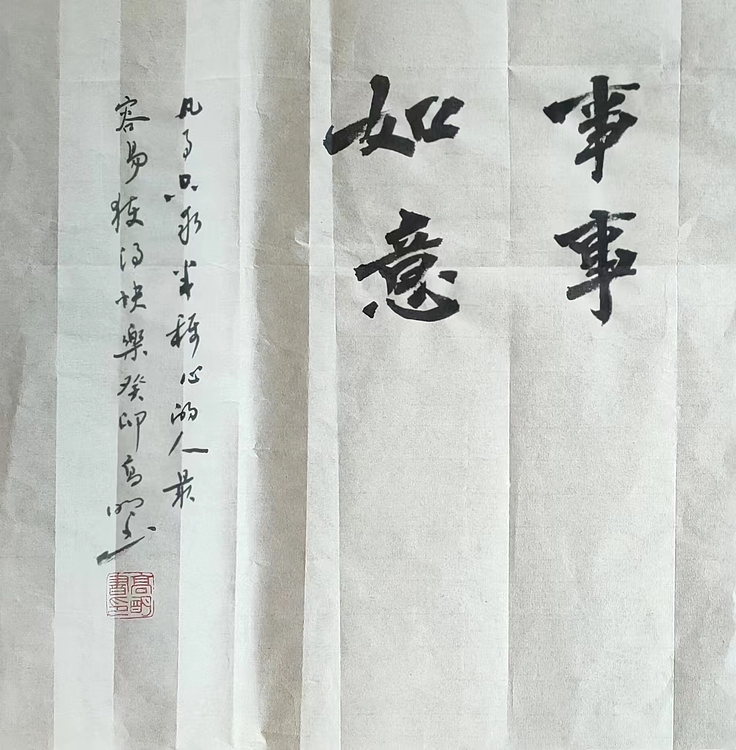 事事
如意
凡事只求半称心的人最
容易获得快樂癸卯高明书
高明書印